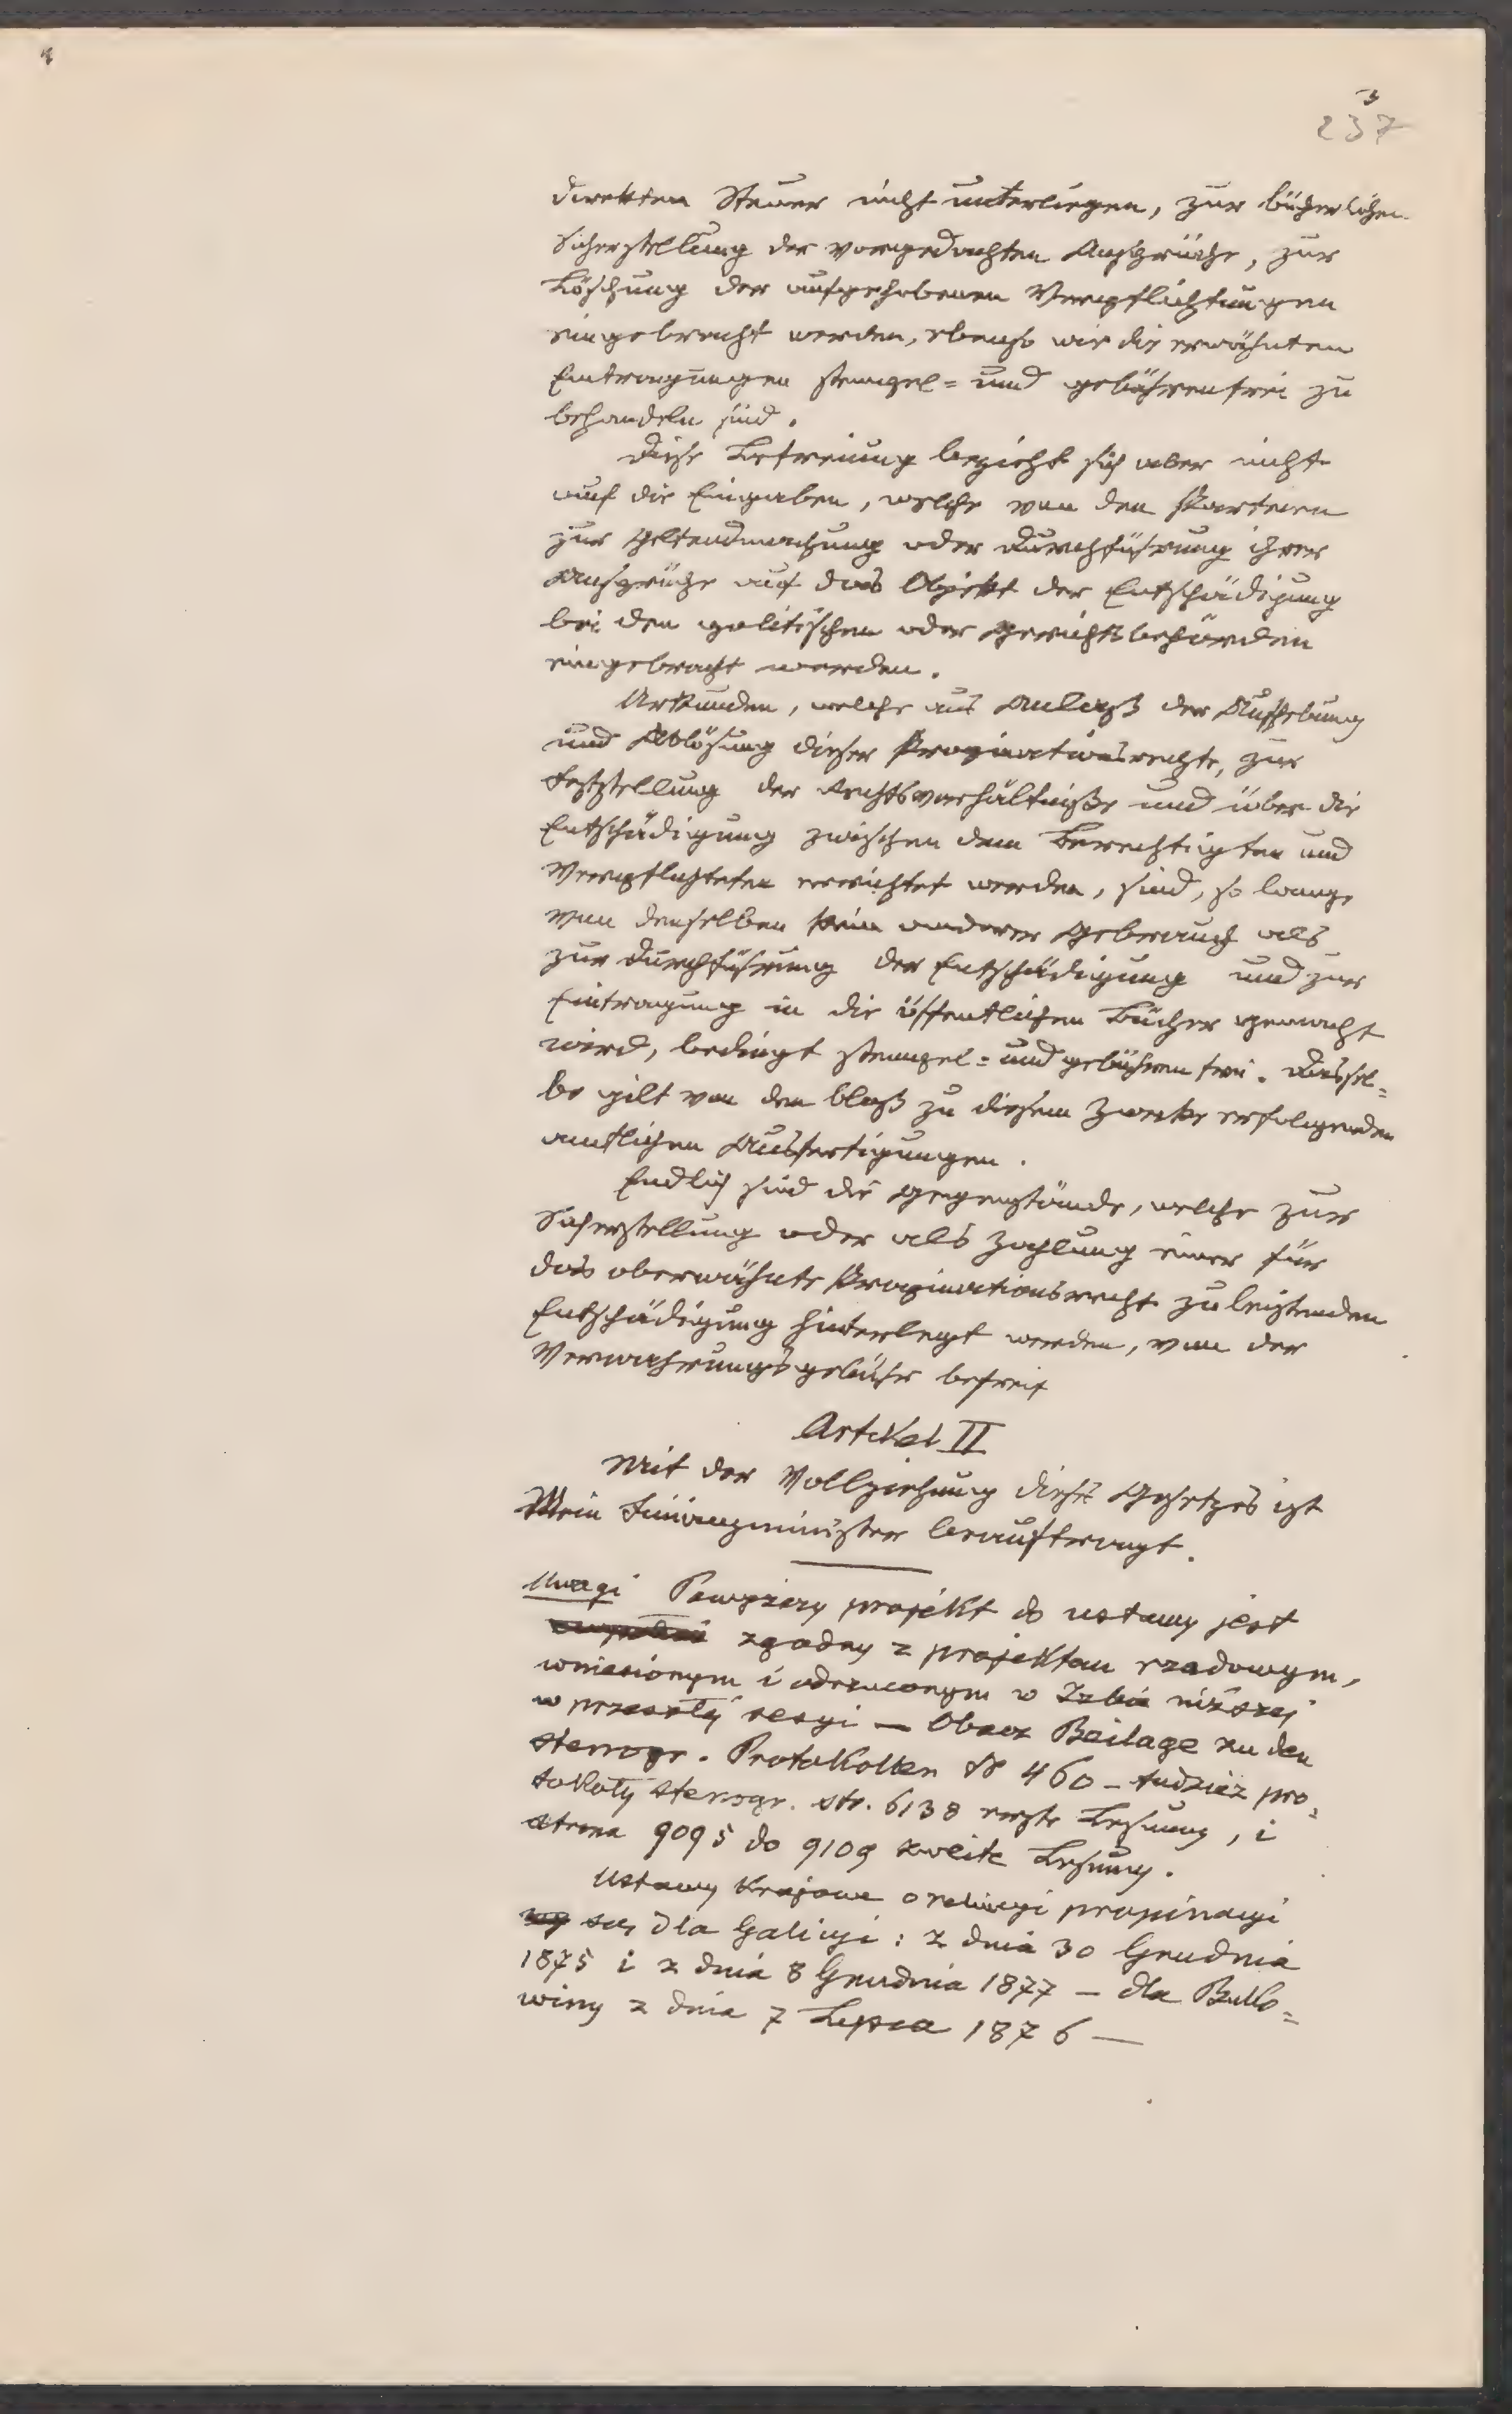 3
237
direkten Steuer nicht unterliegen, zur bücherlichen
Sicherstellung der vorgedachten Ansprüche, zur
Löschung der aufgehobenen Verpflichtungen
eingebracht werden, ebenso wie die erwähnten
Eintragungen stempel= und gebührenfrei zu
behandeln sind.
Diese Befreiung bezieht sich aber nicht
auf die Eingaben, welche von den Parteien
zur Geltendmachung oder Durchführung ihrer
Ansprüche auf das Objekt der Entschädigung
bei den politischen oder Gerichtsbehörden
eingebracht werden.
Urkunden, welche aus Anlaß der Aufhebung
und Ablösung dieser Propinationsrechte, zur
Feststellung der Rechtsverhältniße und über die
Entschädigung zwischen dem Berechtigten und
Verpflichteten errichtet werden, sind, so lange
von denselben kein anderer Gebrauch als
zur Durchführung der Entschädigung und zur
Eintragung in die öffentlichen Bücher gemacht
wird, bedingt stempel= und gebührenfrei. Dassel=
be gilt von den bloß zu diesem Zwecke erfolgenden
amtlichen Ausfertigungen.
Endlich sind die Gegenstände, welche zur
Sicherstellung oder als Zahlung einer für
das oberwähnte Propinationsrecht zu leistenden
Entschädigung hinterlegt werden, von der
Verwahrungsgebühr befreit
Artikel II
Mit der Vollziehung dieses Gesetzes ist
Mein Finanzminister beauftragt.
Uwagi Powyższy projekt do ustawy jest
zgodny z projektem rządowym,
wniesionym i odrzuconym w Izbie niższej
w przeszłej sesyi — Obacz Beilage zu den
stenogr. Protokollen № 460 — tudzież pro=
tokoły stenogr. str. 6138 erste Lesung, i
strona 9095 do 9109 zweite Lesung.
Ustawy krajowe o propinacyi
są dla Galicyi: z dnia 30 Grudnia
1875 i z dnia 8 Grudnia 1877 — dla Buko=
winy z dnia 7 Lipca 1876 —